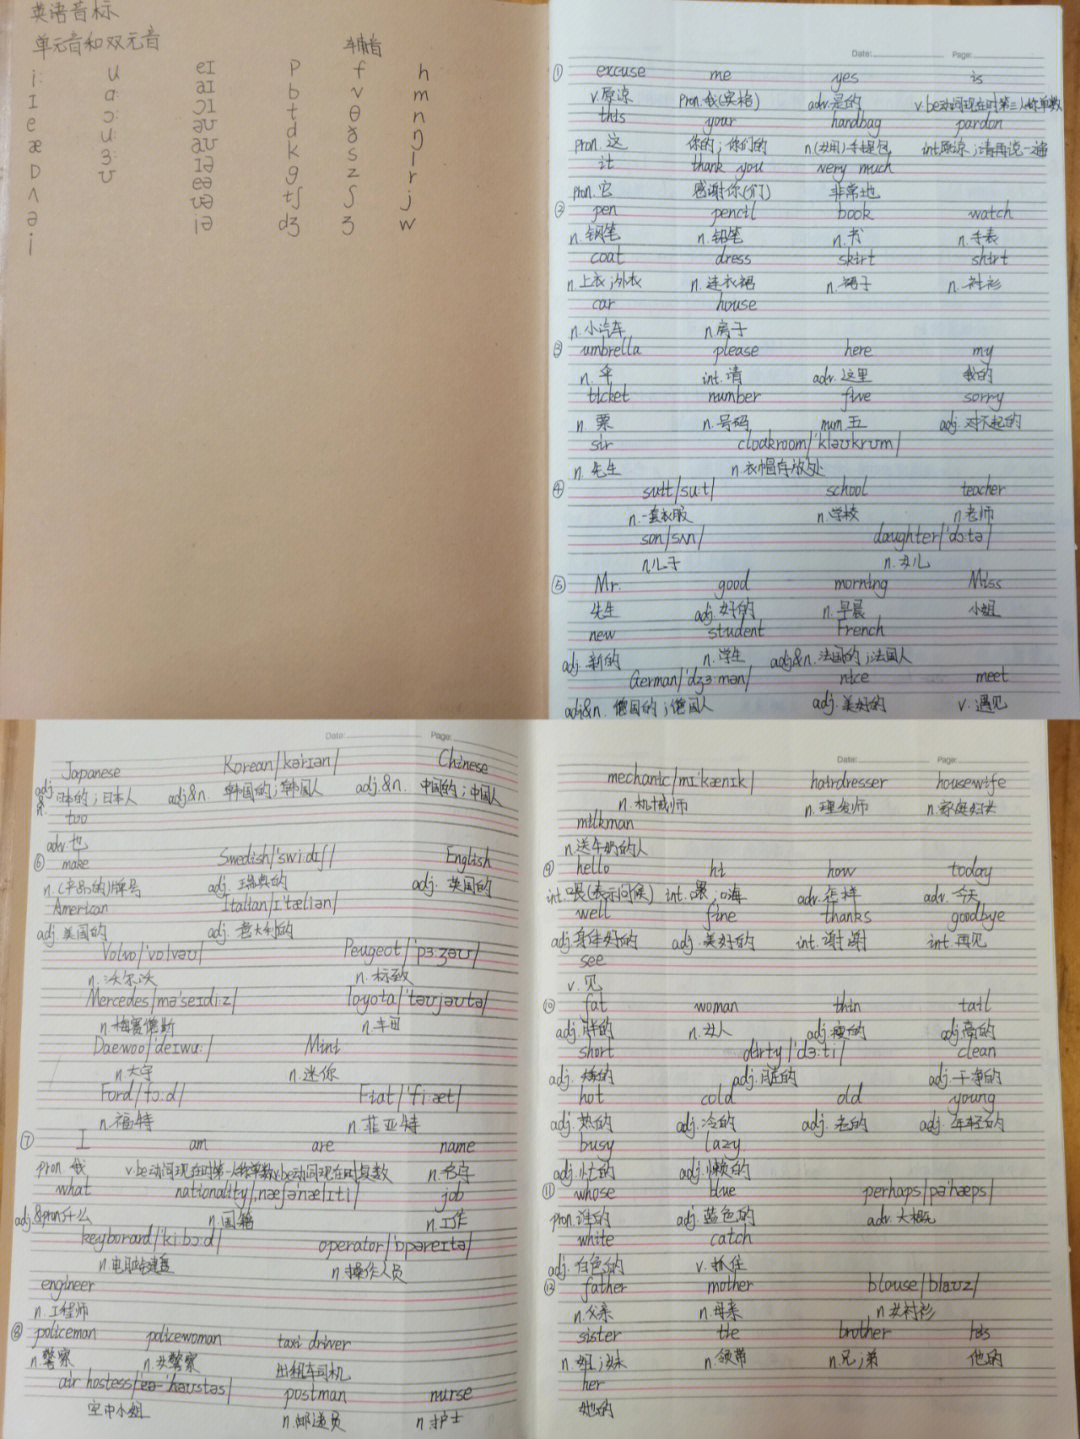 英语音标
单元音和双元音 辅音
i: u eɪ p f h
ɪ ɑ: aɪ b v m
e ɔ: ɔɪ t θ n
æ u: əʊ d ð ŋ
ɒ ɜ: aʊ k s l
ʌ ʊ ɪə g z r
ə eə tʃ ʃ j
i ʊə dʒ ʒ w
iə
Date: Page:
① excuse me yes is
v.原谅 pron.我(宾格) adv.是的 v.be动词现在时第三人称单数
this your handbag pardon
pron.这 你的;你们的 n(女用)手提包 int原谅;请再说一遍
it thank you very much
pron.它 感谢你(们) 非常地
② pen pencil book watch
n.钢笔 n.铅笔 n.书 n.手表
coat dress skirt shirt
n上衣;外衣 n.连衣裙 n.裙子 n.衬衫
car house
n.小汽车 n房子
③ umbrella please here my
n.伞 int.请 adv.这里 我的
ticket number five sorry
n票 n.号码 num五 adj.对不起的
sir cloakroom/'kləʊkrʊm/
n.先生 n.衣帽存放处
④ suit/su:t/ school teacher
n.一套衣服 n.学校 n老师
son/sʌn/ daughter/'dɔ:tə/
n儿子 n.女儿
⑤ Mr. good morning Miss
先生 adj.好的 n.早晨 小姐
new student French
adj.新的 n.学生 adj&n.法国的;法国人
German/'dʒɜ:mən/ nice meet
adj&n.德国的;德国人 adj.美好的 v.遇见
Date: Page:
Japanese Korean/kə'rɪən/ Chinese
adj&n.日本的;日本人 adj&n.韩国的;韩国人 adj.&n.中国的;中国人
too
adv也
⑥ make Swedish/'swi:dɪʃ/ English
n.(产品的)牌号 adj.瑞典的 adj.英国的
American Italian/ɪ'tæliən/
adj.美国的 adj.意大利的
Volvo/'vɒlvəʊ/ Peugeot/'pɜ:ʒəʊ/
n.沃尔沃 n.标致
Mercedes/mə'seɪdi:z/ Toyota/'təʊjəʊtə/
n.梅赛德斯 n.丰田
Daewoo/'deɪwu:/ Mini
n大宇 n.迷你
Ford/fɔ:d/ Fiat/'fi:æt/
n.福特 n.菲亚特
⑦ I am are name
pron.我 v.be动词现在时第一人称单数 v.be动词现在时复数 n.名字
what nationality/,næʃə'nælɪti/ job
adj.&pron什么 n.国籍 n.工作
keyborard/'ki:bɔ:d/ operator/'ɒpəreɪtə/
n电脑键盘 n操作人员
engineer
n.工程师
⑧ policeman policewoman taxi driver
n警察 n.女警察 出租车司机
air hostess/'eə-'həʊstəs/ postman nurse
空中小姐 n.邮递员 n护士
Date: Page:
mechanic/mɪ'kænɪk/ hairdresser housewife
n.机械师 n.理发师 n.家庭妇女
milkman
n.送牛奶的人
⑨ hello hi how today
int.喂(表示问候) int.喂;嗨 adv.怎样 adv.今天
well fine thanks goodbye
adj.身体好的 adj.美好的 int.谢谢 int.再见
see
v.见
⑩ fat woman thin tall
adj.胖的 n.女人 adj.瘦的 adj.高的
short dirty/'dɜ:ti/ clean
adj.矮的 adj.脏的 adj.干净的
hot cold old young
adj.热的 adj.冷的 adj.老的 adj.年轻的
busy lazy
adj.忙的 adj.懒的
⑪ whose blue perhaps/pə'hæps/
pron.谁的 adj.蓝色的 adv.大概
white catch
adj.白色的 v.抓住
⑫ father mother blouse/blaʊz/
n.父亲 n.母亲 n女衬衫
sister tie brother his
n.姐;妹 n.领带 n.兄;弟 他的
her
她的